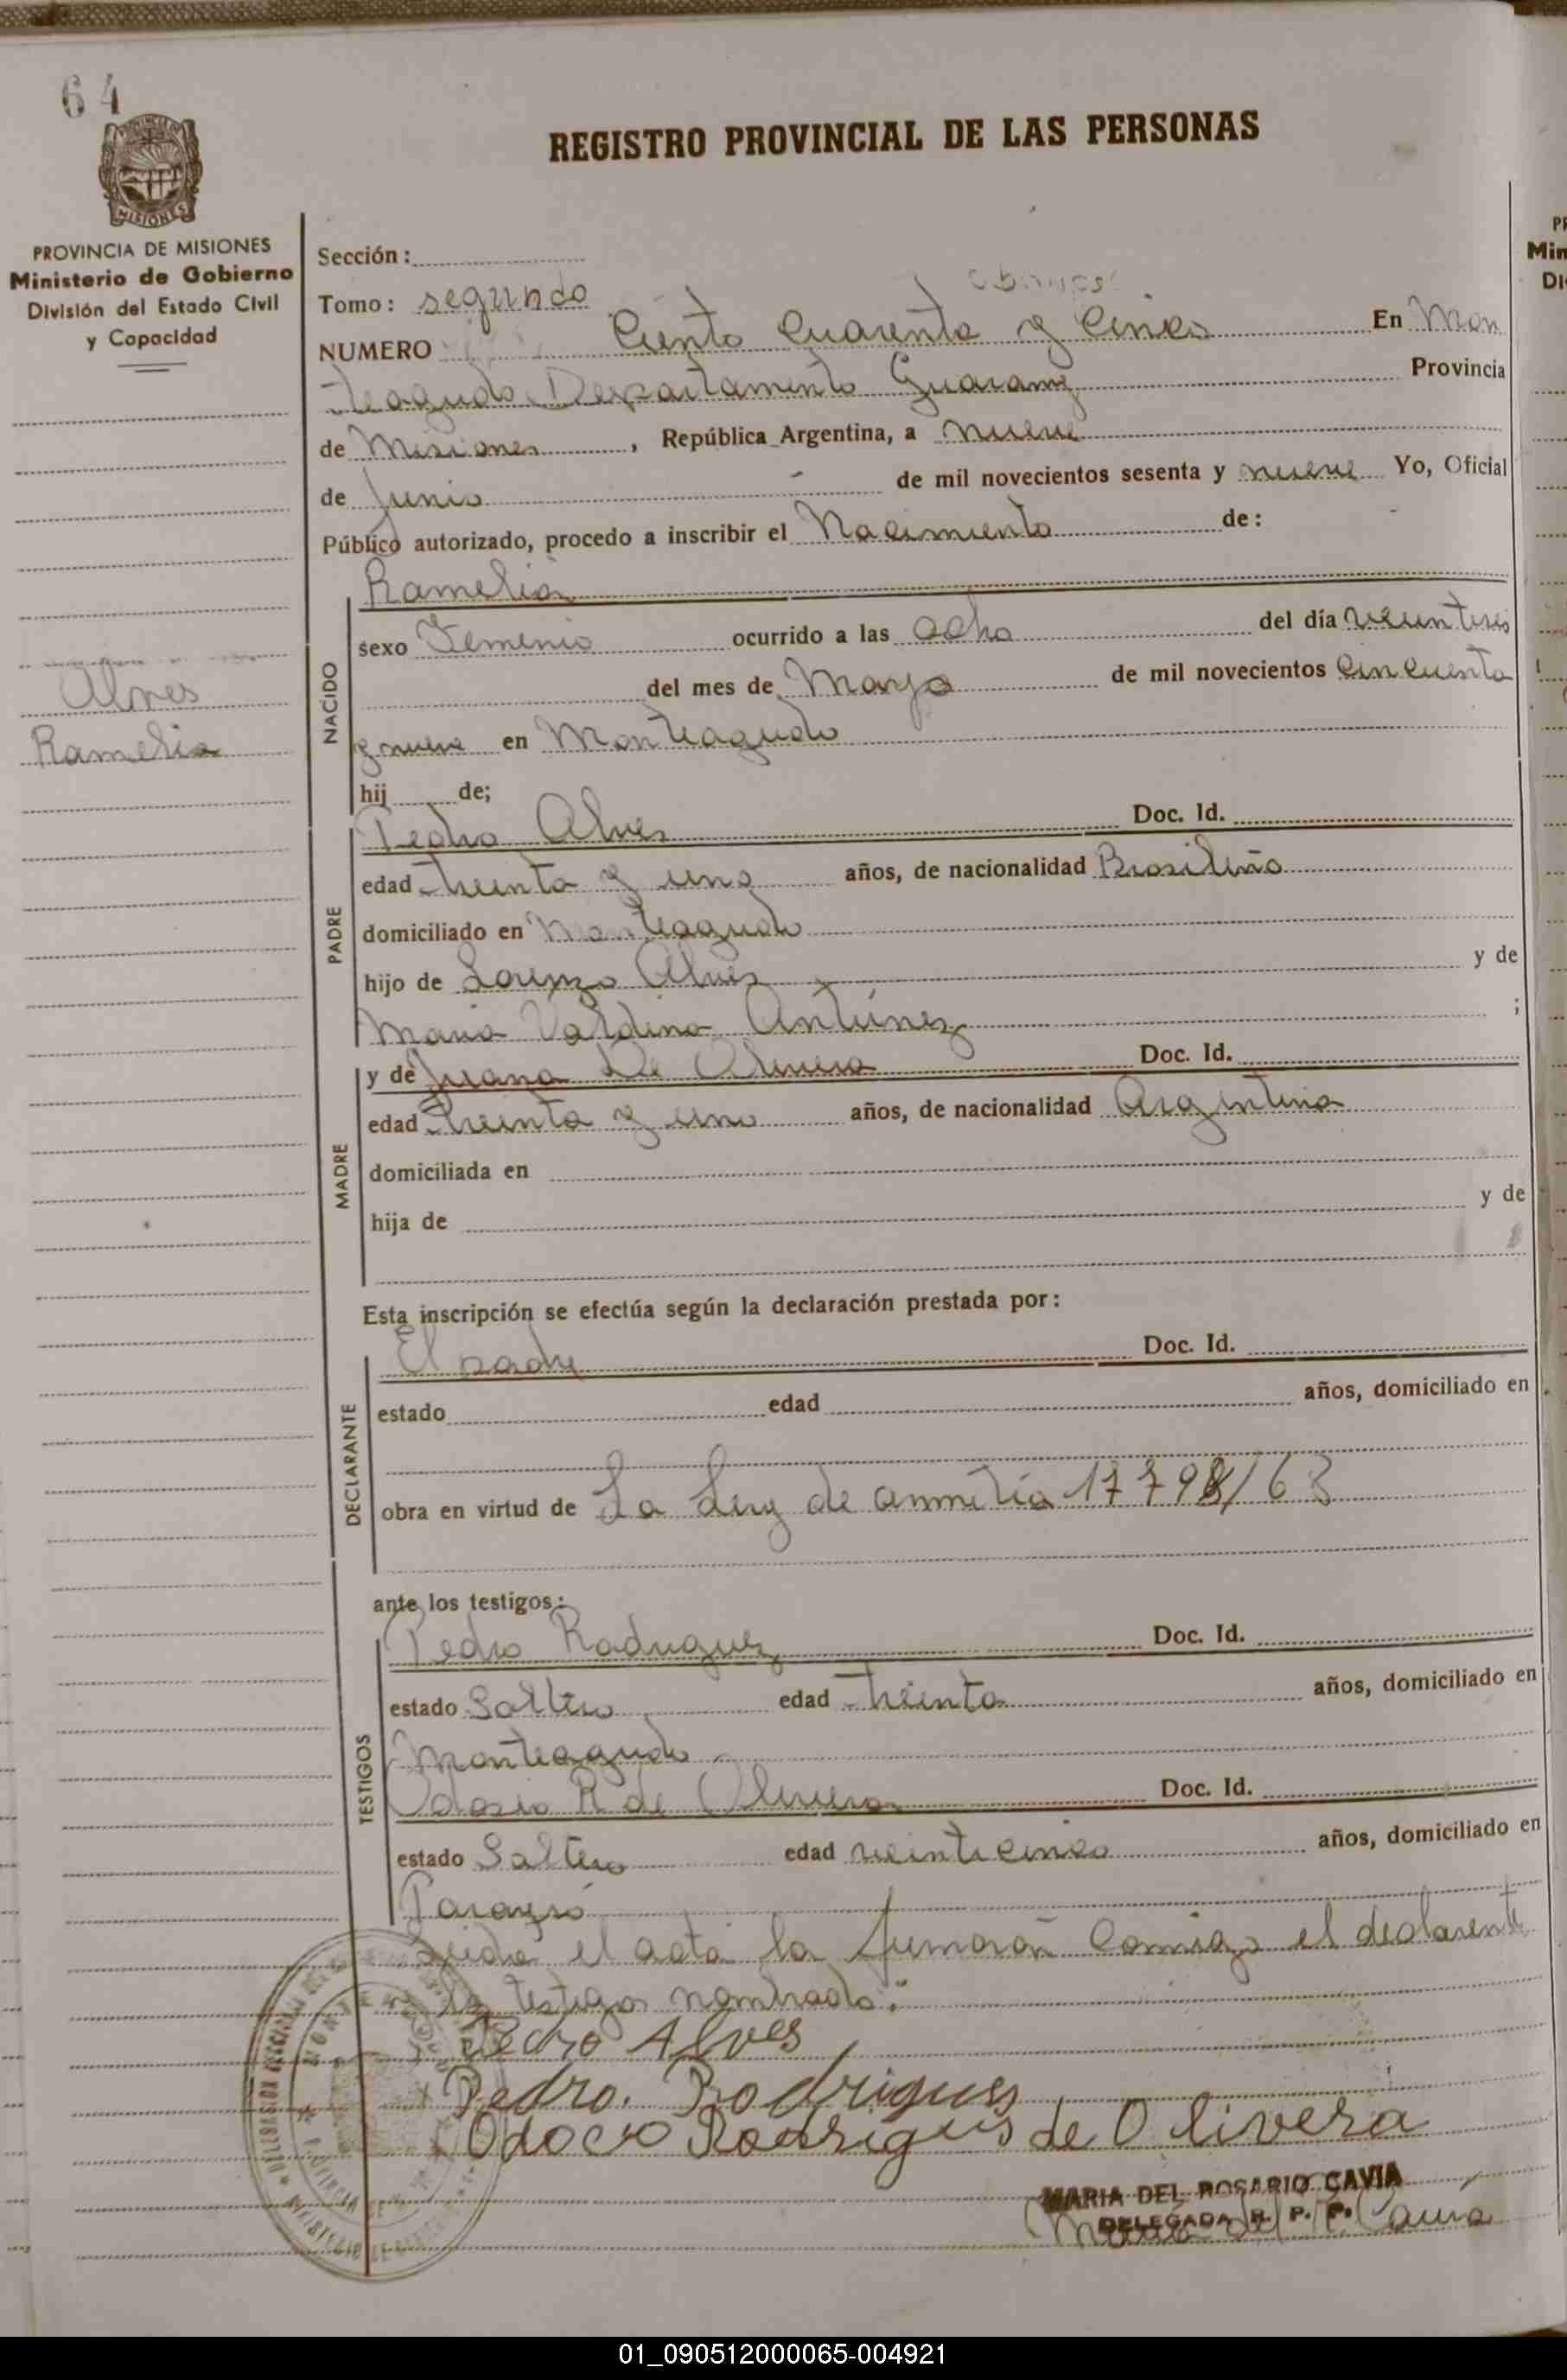 64
REGISTRO PROVINCIAL DE LAS PERSONAS
PROVINCIA DE MISIONES
Ministerio de Gobierno
División del Estado Civil
y Capacidad
Alves
Ramelia
Sección :
Tomo : segundo
NUMERO Ciento Cuarenta y Cinco En Mon
teagudo Departamento Guarany Provincia
de Misiones , República Argentina, a nueve
de Junio de mil novecientos sesenta y nueve Yo, Oficial
Público autorizado, procedo a inscribir el Nacimiento de :
NACIDO
Ramelia
sexo Femenio ocurrido a las ocho del día veintiseis
del mes de Mayo de mil novecientos cincuenta
y nueve en Monteagudo
hij de;
PADRE
Pedro Alves Doc. Id.
edad treinta y uno años, de nacionalidad Brasileño
domiciliado en Monteagudo
hijo de Lorenzo Alves y de
Maria Valdina Antúnez ;
MADRE
y de Juana De Olivera Doc. Id.
edad treinta y uno años, de nacionalidad Argentina
domiciliada en
hija de y de
Esta inscripción se efectúa según la declaración prestada por :
DECLARANTE
El padre Doc. Id.
estado edad años, domiciliado en
obra en virtud de La Ley de 17798/63
ante los testigos :
TESTIGOS
Pedro Rodriguez Doc. Id.
estado Soltero edad treinta años, domiciliado en
Monteagudo
R de Olivera Doc. Id.
estado Soltero edad veinticinco años, domiciliado en
Parayso
el acta la firmaron Conmigo el declarente
testigos nombrados.
Pedro Alves
Pedro. Rodrigues
Odocio Rodrigues de Olivera
MARIA DEL ROSARIO CAVIA
DELEGADA R. P. P.
Maria del R. Cavia
01_090512000065-004921